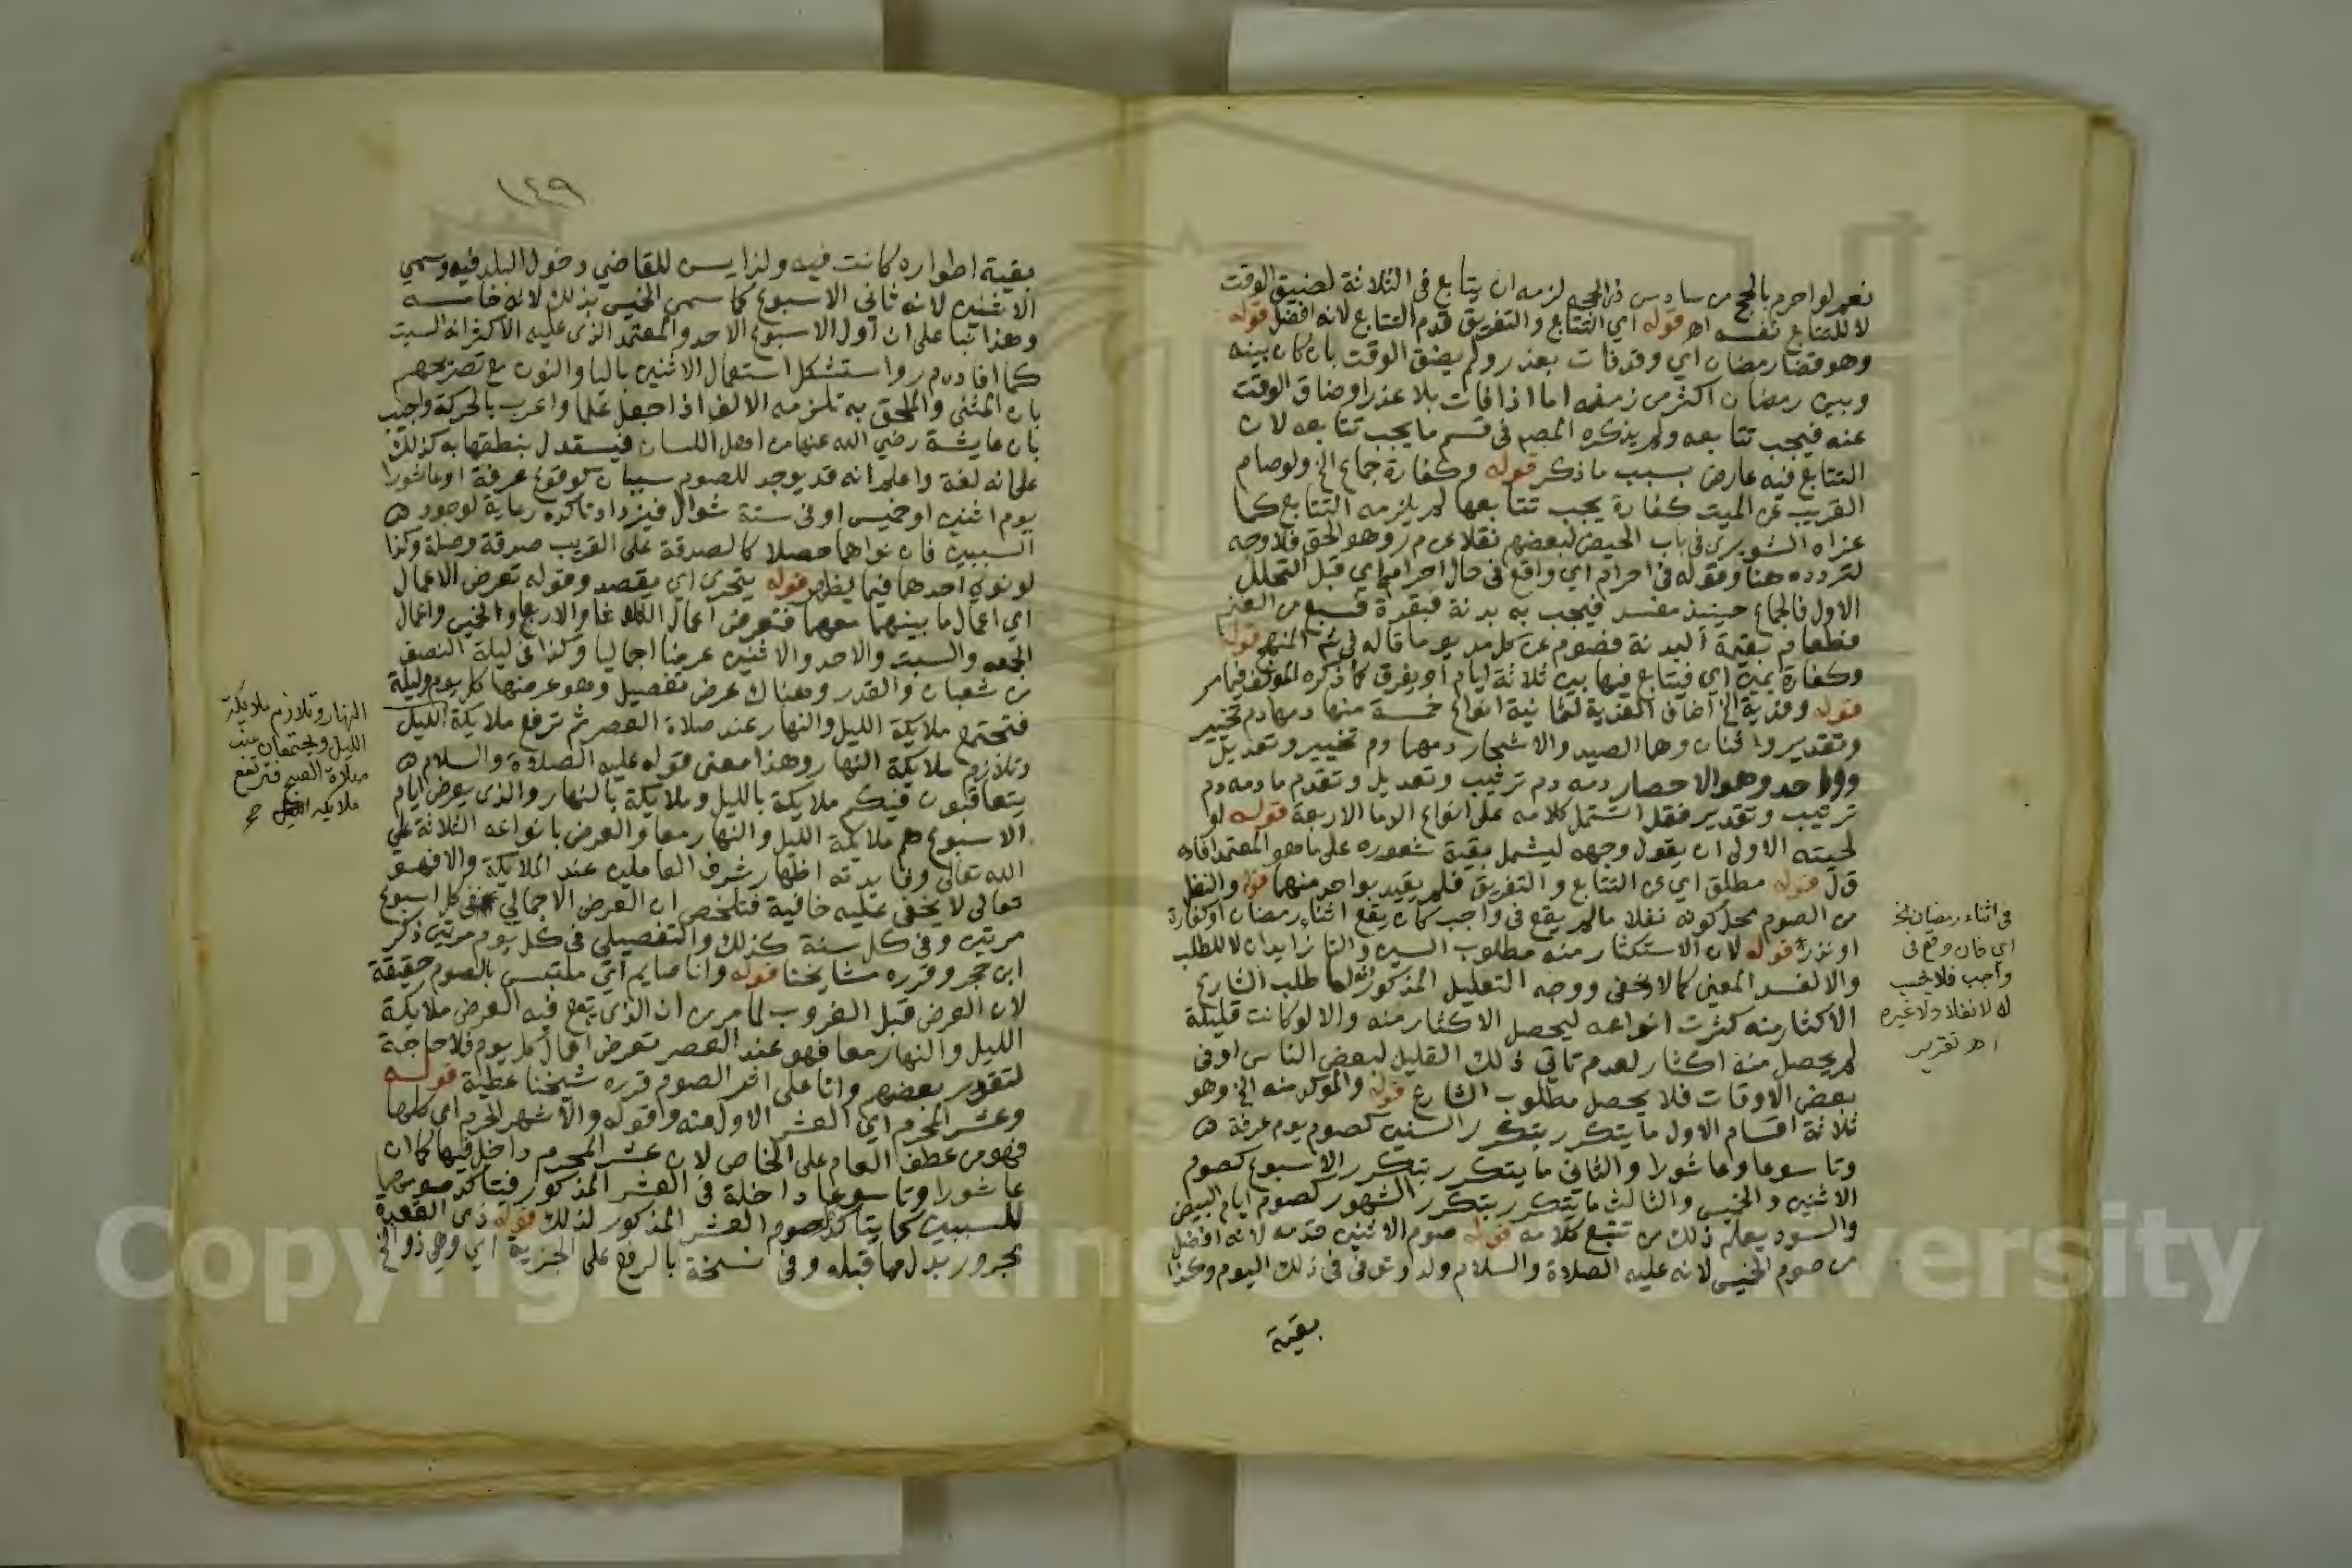 نعم لو احرم بالحج من سادس ذي الحجه لزمه ان يتابع في الثلاثة لضيق الوقت
لا للتتابع نفسه اه قوله اي التتابع والتفريق قدم التتابع لانه افضل قوله
وهو قضا رمضان اي وقد فات بعذر ولم يضق الوقت بان كان بينه
وبين رمضان اكثر من زمنه اما اذا فات بلا عذر او ضاق الوقت
عنه فيجب تتابعه ولم يذكره المصم في قسم ما يجب تتابعه لان
التتابع فيه عارض بسبب ما ذكر قوله وكفارة جماع الخ ولو صام
القريب عن الميت كفارة يجب تتابعها لم يلزمه التتابع كما
عزاه الشوبري في باب الحيض لبعضهم نقلا عن م ر وهو الحق فلا وجه
لتردده هنا وقوله في احرام اي واقع في حال احرام اي قبل التحلل
الاول فالجماع حينيذ مفسد فيجب به بدنة فبقرة فسبع من الغنم
فطعام بقيمة البدنة فصوم عن كل مد يوما قاله في شم المنهج قوله
وكفارة يمين اي فيتابع فيها بين ثلاثة ايام او يفرق كما ذكره المولف فيما مر
قوله وفدية الخ اضاف الفدية لثمانية انواع خمسة منها دمها دم تخيير
وتقدير واثنان وهما الصيد والاشجار دمهما دم تخيير وتعديل
وواحد وهو الاحصار دمه دم ترتيب وتعديل وتقدم ما دمه دم
ترتيب وتقدير فقد اشتمل كلامه على انواع الدما الاربعة قوله او
لحيته الاولى ان يقول وجهه ليشمل بقية شعوره على ما هو المعتمد افاده
ق ل قوله مطلق اي عن التتابع والتفريق فلم يقيد بواحد منهما قوله والنفل
من الصوم محل كونه نفلا ما لم يقع في واجب كان يقع اثناء رمضان او كفارة
او نذر قوله لان الاستكثار منه مطلوب السين والتا زايدان لا للطلب
والا لفسد المعنى كما لا يخفى ووجه التعليل المذكور انه لما طلب الشارع
الاكثار منه كثرت انواعه ليحصل الاكثار منه والا لو كانت قليلة
لم يحصل منه اكثار لعدم تاتي ذلك القليل لبعض الناس او في
بعض الاوقات فلا يحصل مطلوب الشارع قوله والموكد منه الخ وهو
ثلاثة اقسام الاول ما يتكرر بتكرر السنين كصوم يوم عرفة
وتاسوعا وعاشورا والثاني ما يتكرر بتكرر الاسبوع كصوم
الاثنين والخميس والثالث ما يتكرر بتكرر الشهور كصوم ايام البيض
والسود يعلم ذلك من تتبع كلامه قوله صوم الاثنين قدمه لانه افضل
من صوم الخميس لانه عليه الصلاة والسلام ولد وتوفى في ذلك اليوم وكذا
بقية
في اثناء رمضان الخ
اي فان وقع في
واجب فلا يحسب
له لا نفلا ولا غيره
اه تقرير
١٤٩
بقية اطواره كانت فيه ولذا يسن للقاضي دخول البلد فيه وسمي
الاثنين لانه ثاني الاسبوع كما سمي الخميس بذلك لانه خامسه
وهذا بنا على ان اول الاسبوع الاحد والمعتمد الذي عليه الاكثر انه السبت
كما افاده م ر واستشكل استعمال الاثنين باليا والنون مع تصريحهم
بان المثنى والملحق به تلزمه الالف اذا جعل علما واعرب بالحركة واجيب
بان عايشة رضي الله عنها من اهل اللسان فيستدل بنطقها به كذلك
على انه لغة واعلم انه قد يوجد للصوم سببان كوقوع عرفة او عاشورا
يوم اثنين او خميس او في ستة شوال فيزداد تاكده رعاية لوجود
السببين فان نواهما حصلا كالصدقة على القريب صدقة وصلة وكذا
لو نوى احدهما فيما يظهر قوله يتحرى اي يقصد وقوله تعرض الاعمال
اي اعمال ما بينهما معهما فتعرض اعمال الثلاثا والاربعا والخميس واعمال
الجمعه والسبت والاحد والاثنين عرضا اجماليا وكذا في ليلة النصف
من شعبان والقدر وهناك عرض تفصيل وهو عرضها كل يوم وليلة
فتجتمع ملايكة الليل والنهار عند صلاة العصر ثم ترفع ملايكة الليل
وتلازم ملايكة النهار وهذا معنى قوله عليه الصلاة والسلام
يتعاقبون فيكم ملايكة بالليل وملايكة بالنهار والذي يعرض ايام
الاسبوع هم ملايكة الليل والنهار معا والعرض بانواعه الثلاثة على
الله تعالى وفايدته اظهار شرف العاملين عند الملايكة والا فهو
تعالى لا يخفى عليه خافية فتلخص ان العرض الاجمالي في كل اسبوع
مرتين وفي كل سنة كذلك والتفصيلي في كل يوم مرتين ذكر
ابن حجر وقرره مشايخنا قوله وانا صايم اي ملتبس بالصوم حقيقة
لان العرض قبل الغروب لما مر من ان الذي يقع فيه العرض ملايكة
الليل والنهار معا فهو عند العصر تعرض اعمال كل يوم فلا حاجة
لتقدير بعضهم وانا على اثر الصوم قرره شيخنا عطية قوله
وعشر المحرم اي العشر الاول منه وقوله والاشهر الحرم اي كلها
فهو من عطف العام على الخاص لان عشر المحرم داخل فيها كما ان
عاشورا وتاسوعا داخلة في العشر المذكور فيتاكد صومهما
للسببين كما يتاكد صوم العشر المذكور لذلك قوله ذي القعدة
مجرور بدل مما قبله وفي نسخة بالرفع على الخبرية اي وهي ذو الخ
النهار وتلازم ملايكة
الليل ويجتمعان عند
صلاة الصبح فترتفع
ملايكه الليل صح
Copyright © King Saud University